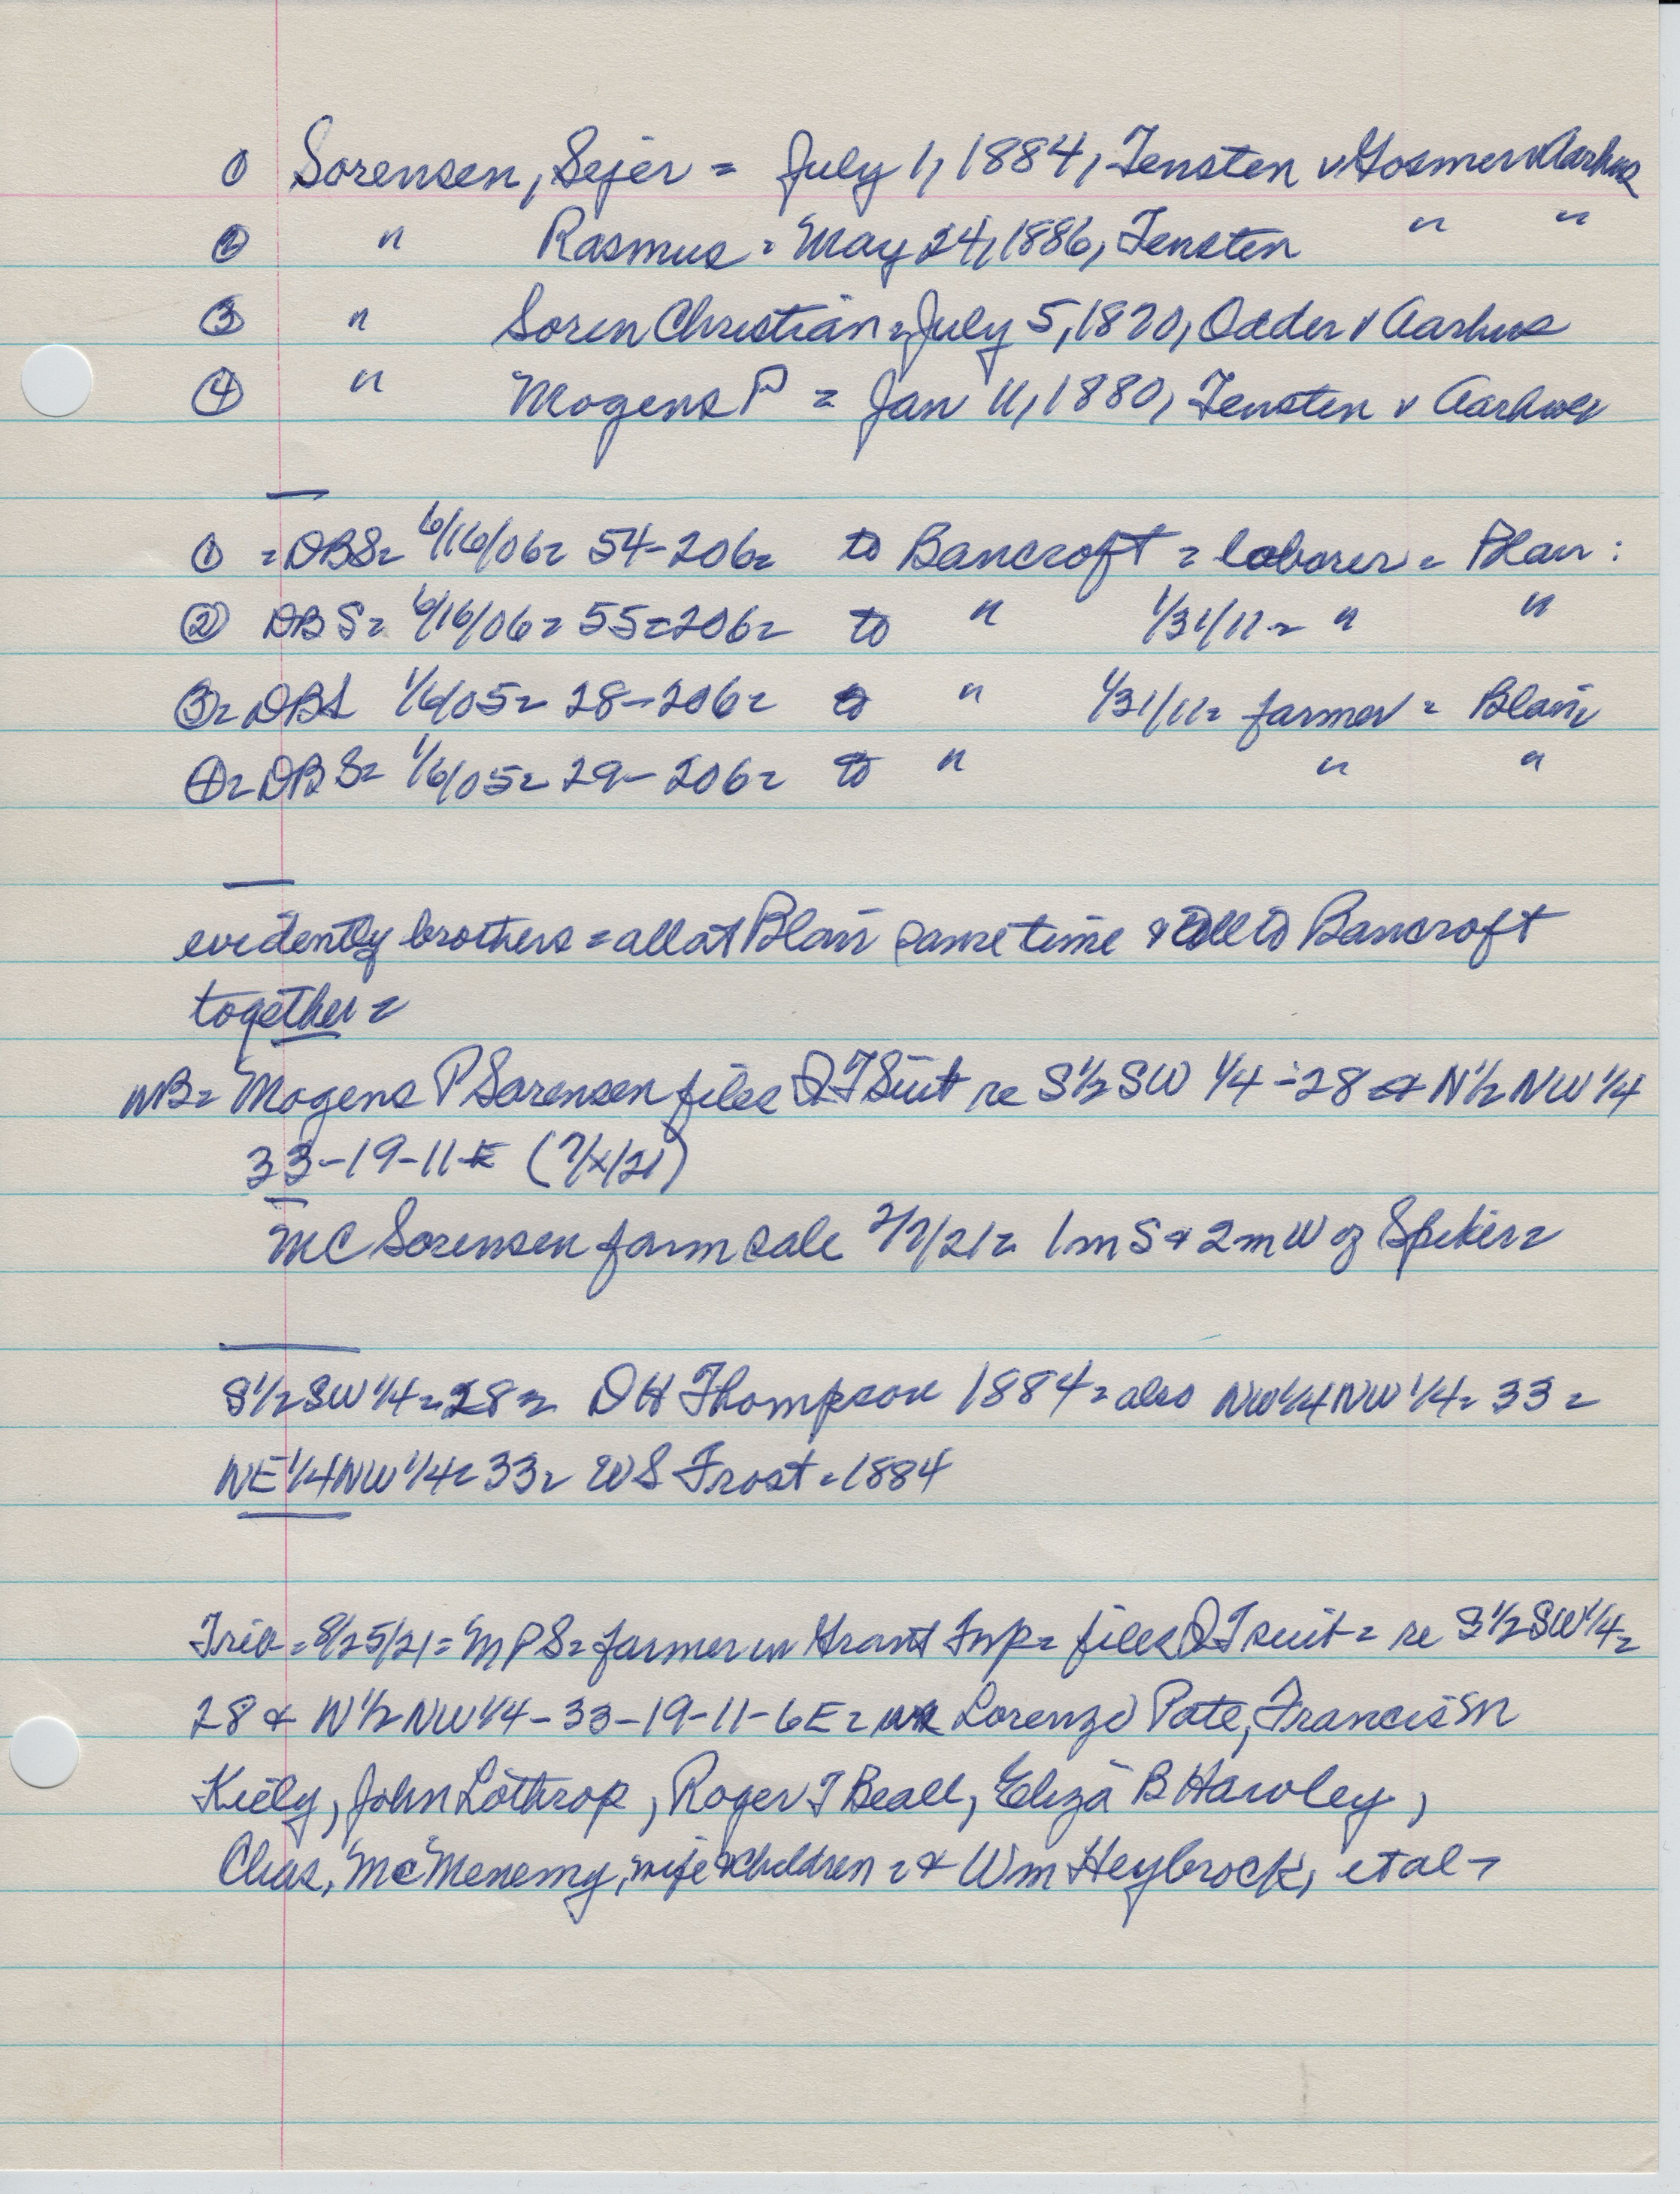 ① Sorensen, Sejer = July 1, 1884, Tensten v Gosmer v Aarhus
② " Rasmus = May 24, 1886, Tensten " "
③ " Soren Christian = July 5, 1870, Odder v Aarhus
④ " Mogens P = Jan 11, 1880, Tensten v Aarhus
① = DBS = 6/16/06 = 54-206 = to Bancroft = laborer = Blair :
② DBS = 6/16/06 = 55=206 = to " 1/31/11 = " "
③ = DBS 1/6/05 = 28-206 = to " 1/31/11 = farmer = Blair =
④ = DBS = 1/6/05 = 29-206 = to " " "
evidently brothers = all at Blair same time & all to Bancroft
together =
NB = Mogens P Sorensen files QT Suit re S 1/2 SW 1/4 - 28 & N 1/2 NW 1/4
33-19-11-E (?/x/21)
MC Sorensen farm sale 2/7/21 = 1 m S & 2 m W of Spiker =
S 1/2 SW 1/4 = 28 = DH Thompson 1884 = also NW 1/4 NW 1/4 = 33 =
NE 1/4 NW 1/4 = 33 = WS Frost = 1884
Trib = 8/25/21 = MPS = farmer in Grant Twp = files QT suit = re S 1/2 SW 1/4 =
28 & N 1/2 NW 1/4 - 33-19-11-6E = Lorenzo Pate, Francis M
Kiely, John Lothrop, Roger T Beall, Eliza B Hawley,
Chas. McMenemy, wife & children = & Wm Heybrock, et al -